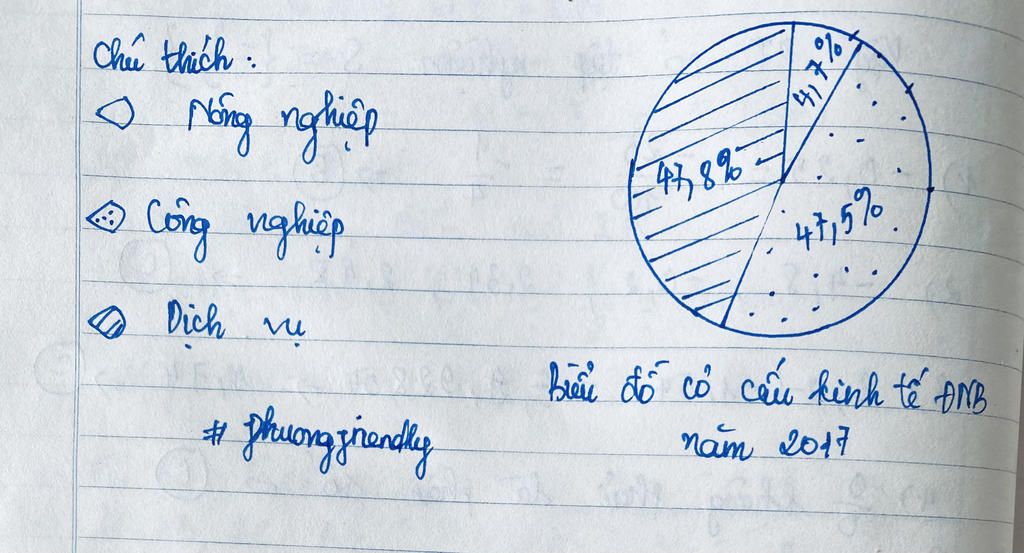 Chú thích :
Nông nghiệp
Công nghiệp
Dịch vụ
# phuongfriendly
4,7%
47,8%
47,5%
Biểu đồ cơ cấu kinh tế ĐNB
năm 2017